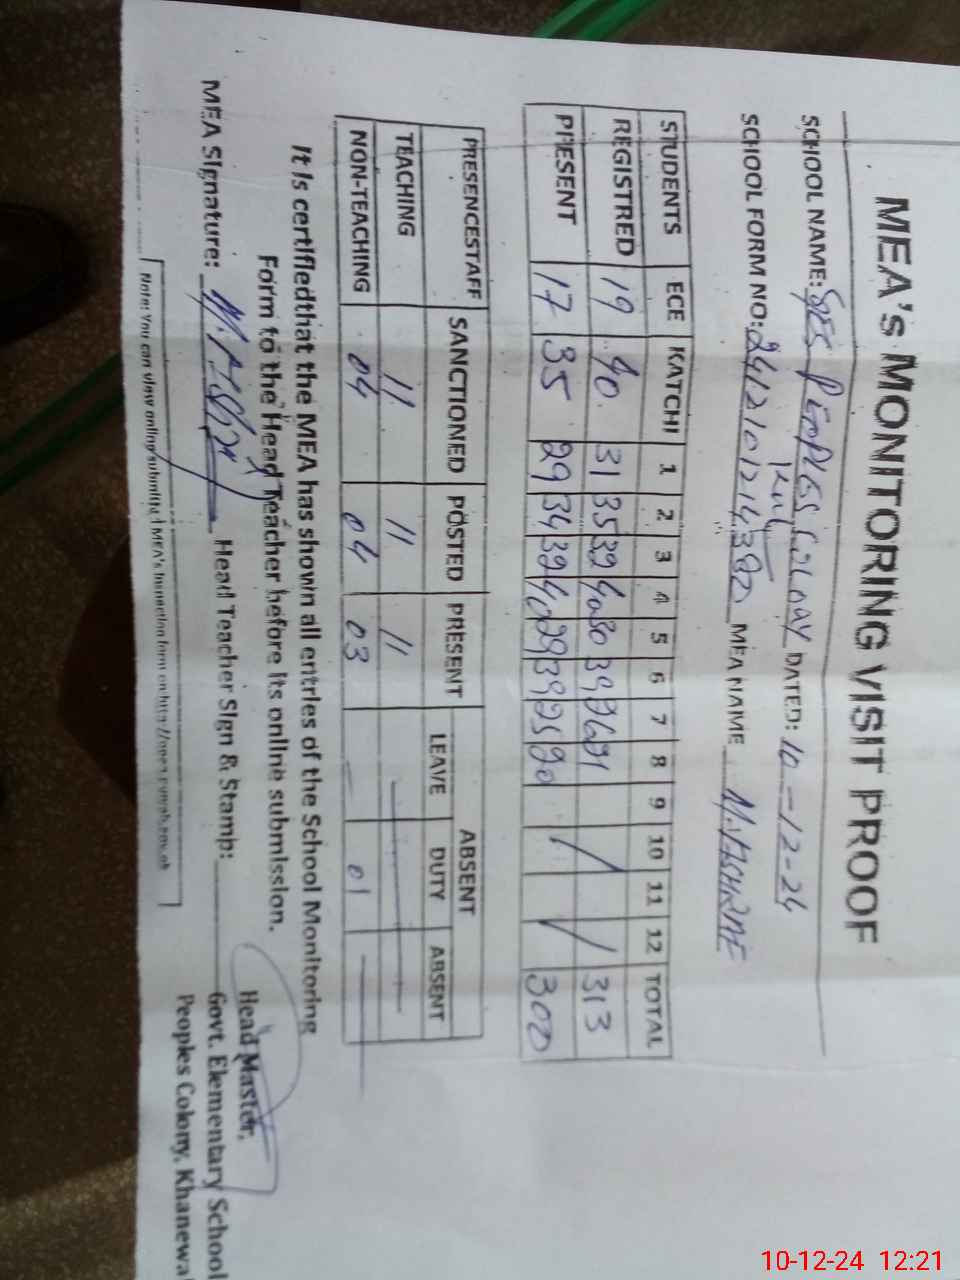 MEA's MONITORING VISIT PROOF
SCHOOL NAME: GES PEOPLES COLONY DATED: 10-12-24
SCHOOL FORM NO: MEA NAME
STUDENTS ECE KATCHI 1 2 3 4 5 6 7 8 9 10 11 12 TOTAL
REGISTRED 19 40 31 35 32 40 30 39 26 21 313
PRESENT 17 35 29 34 32 40 29 39 25 20 300
PRESENCESTAFF SANCTIONED POSTED PRESENT ABSENT
LEAVE DUTY ABSENT
TEACHING 11 11 11
NON-TEACHING 04 04 03 01
It is certifiedthat the MEA has shown all entries of the School Monitoring
Form to the Head Teacher before its online submission.
MEA Signature: Head Teacher Sign & Stamp:
Head Master,
Govt. Elementary School
Peoples Colony, Khanewal
Note: You can view online submitted MEA's Inspection form on
10-12-24 12:21